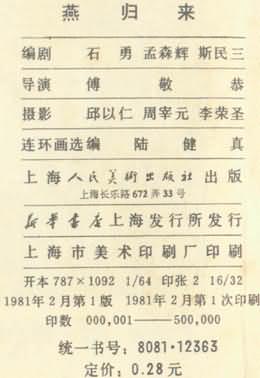 燕归来
编剧 石勇 孟森辉 斯民三
导演 傅敬恭
摄影 邱以仁 周宰元 李荣圣
连环画选编 陆健真
上海人民美術出版社出版
上海长乐路672弄33号
新华书店上海发行所发行
上海市美术印刷厂印刷
开本 787×1092 1/64 印张 2 16/32
1981年2月第1版 1981年2月第1次印刷
印数 000,001——500,000
统一书号：8081·12363
定价：0.28元